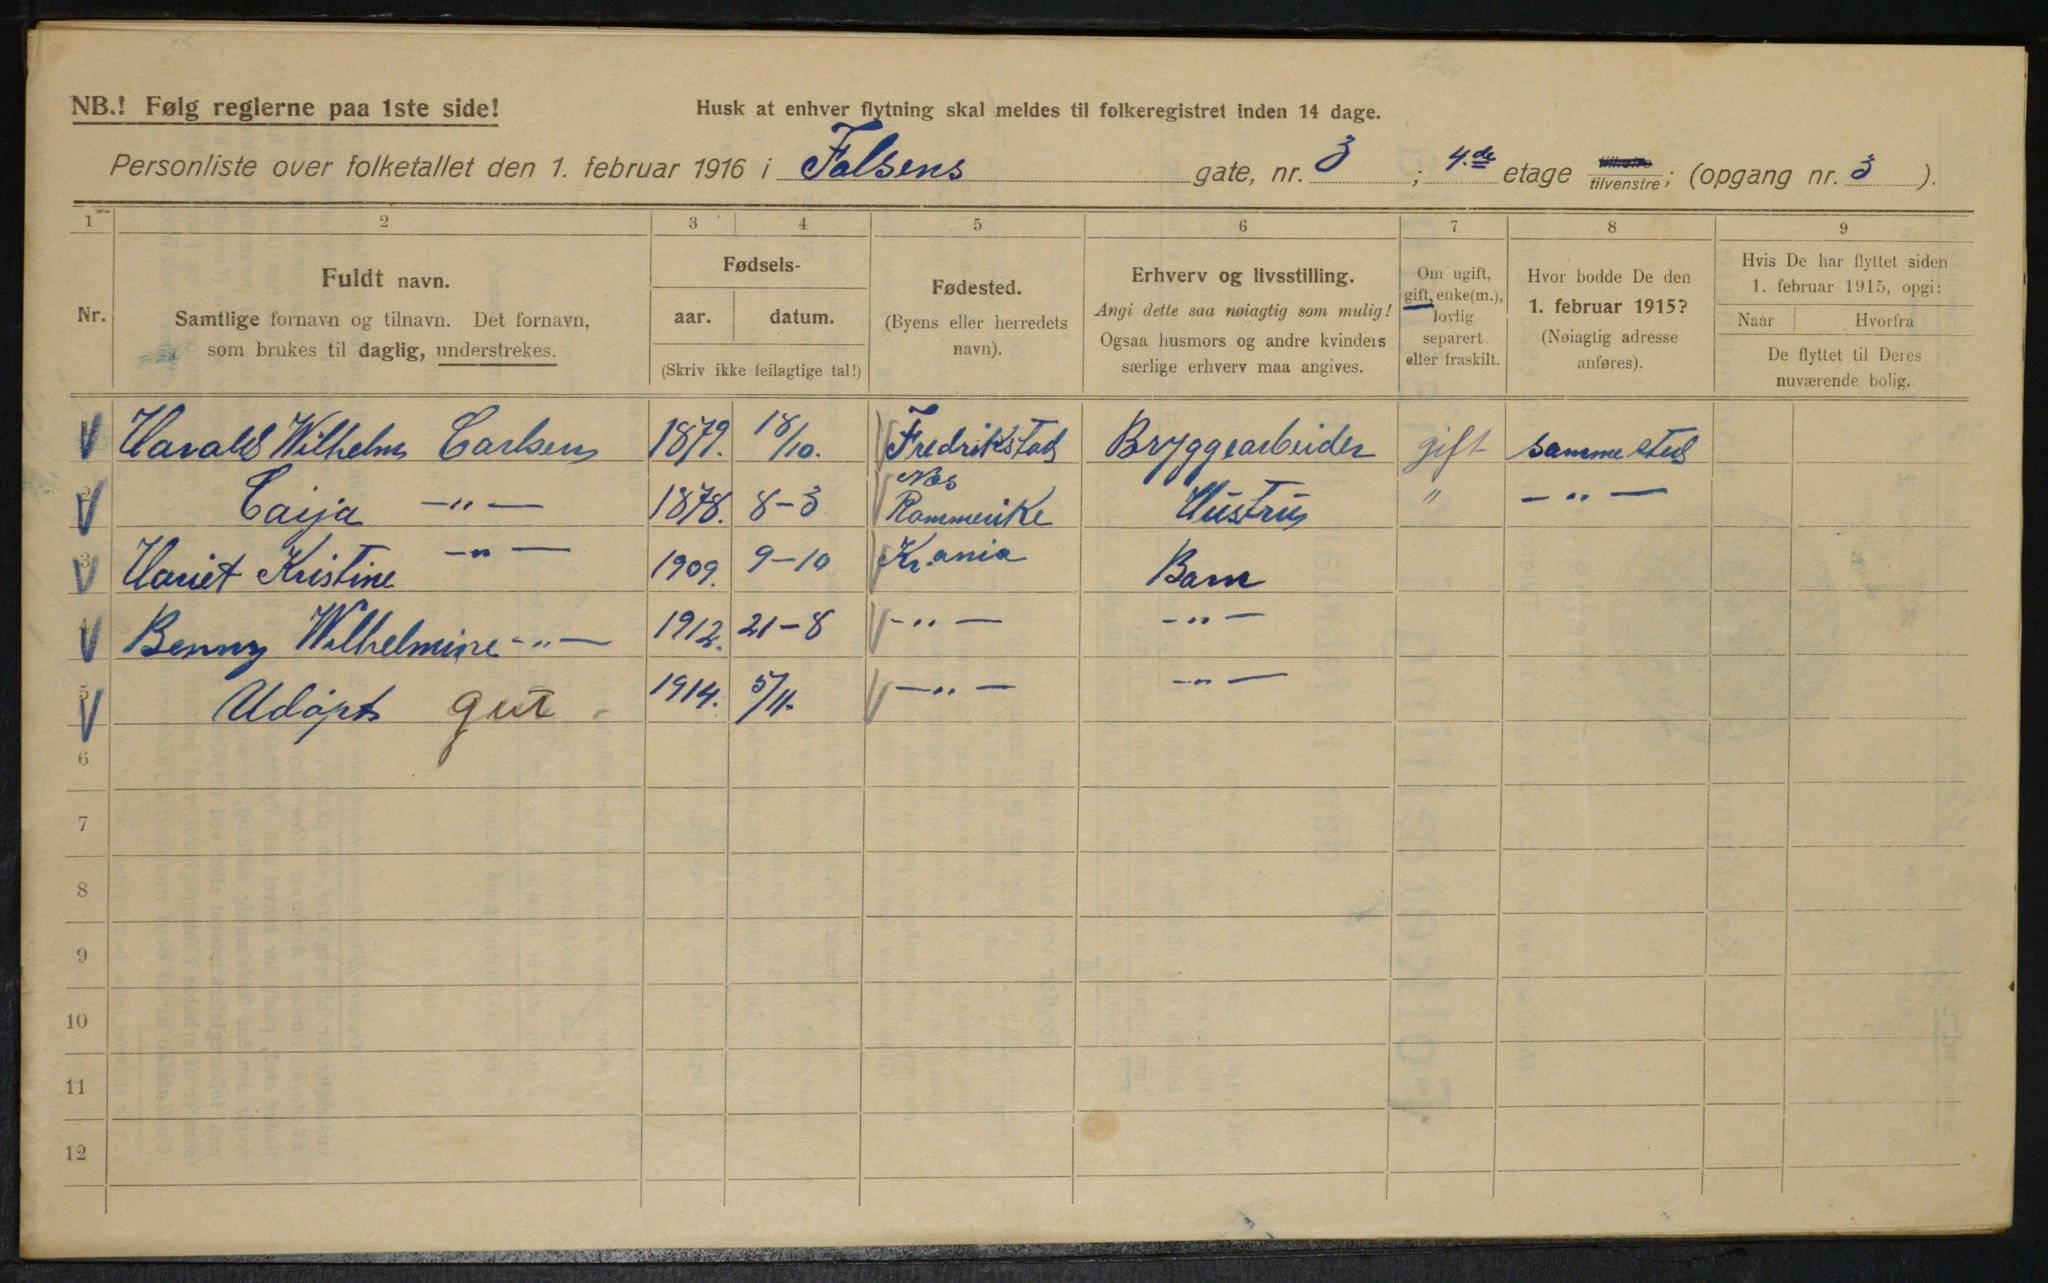 NB.! Følg reglerne paa 1ste side!
Husk at enhver flytning skal meldes til folkeregistret inden 14 dage.
Personliste over folketallet den 1. februar 1916 i Falsens gate, nr. 3 ; 4.de etage tilhøire tilvenstre; (opgang nr. 3 ).
1 2 3 4 5 6 7 8 9
Nr.
Fuldt navn.
Samtlige fornavn og tilnavn. Det fornavn,
som brukes til daglig, understrekes.
Fødsels-
aar. datum.
(Skriv ikke feilagtige tal!)
Fødested.
(Byens eller herredets
navn).
Erhverv og livsstilling.
Angi dette saa nøiagtig som mulig!
Ogsaa husmors og andre kvinders
særlige erhverv maa angives.
Om ugift,
gift, enke(m.),
lovlig
separert
eller fraskilt.
Hvor bodde De den
1. februar 1915?
(Nøiagtig adresse
anføres).
Hvis De har flyttet siden
1. februar 1915, opgi:
Naar Hvorfra
De flyttet til Deres
nuværende bolig.
Harald Wilhelm Carlsen 1879. 18/10. Fredrikstad Bryggearbeider gift samme sted
2 Caija —"— 1878. 8-3 Nes Romerike Hustru " —"—
3 Hariet Kristine —"— 1909. 9-10 Kr.ania Barn
4 Benny Wilhelmine —"— 1912. 21-8 —"— —"—
5 Udøpt gut 1914. 5/11. —"— —"—
6
7
8
9
10
11
12